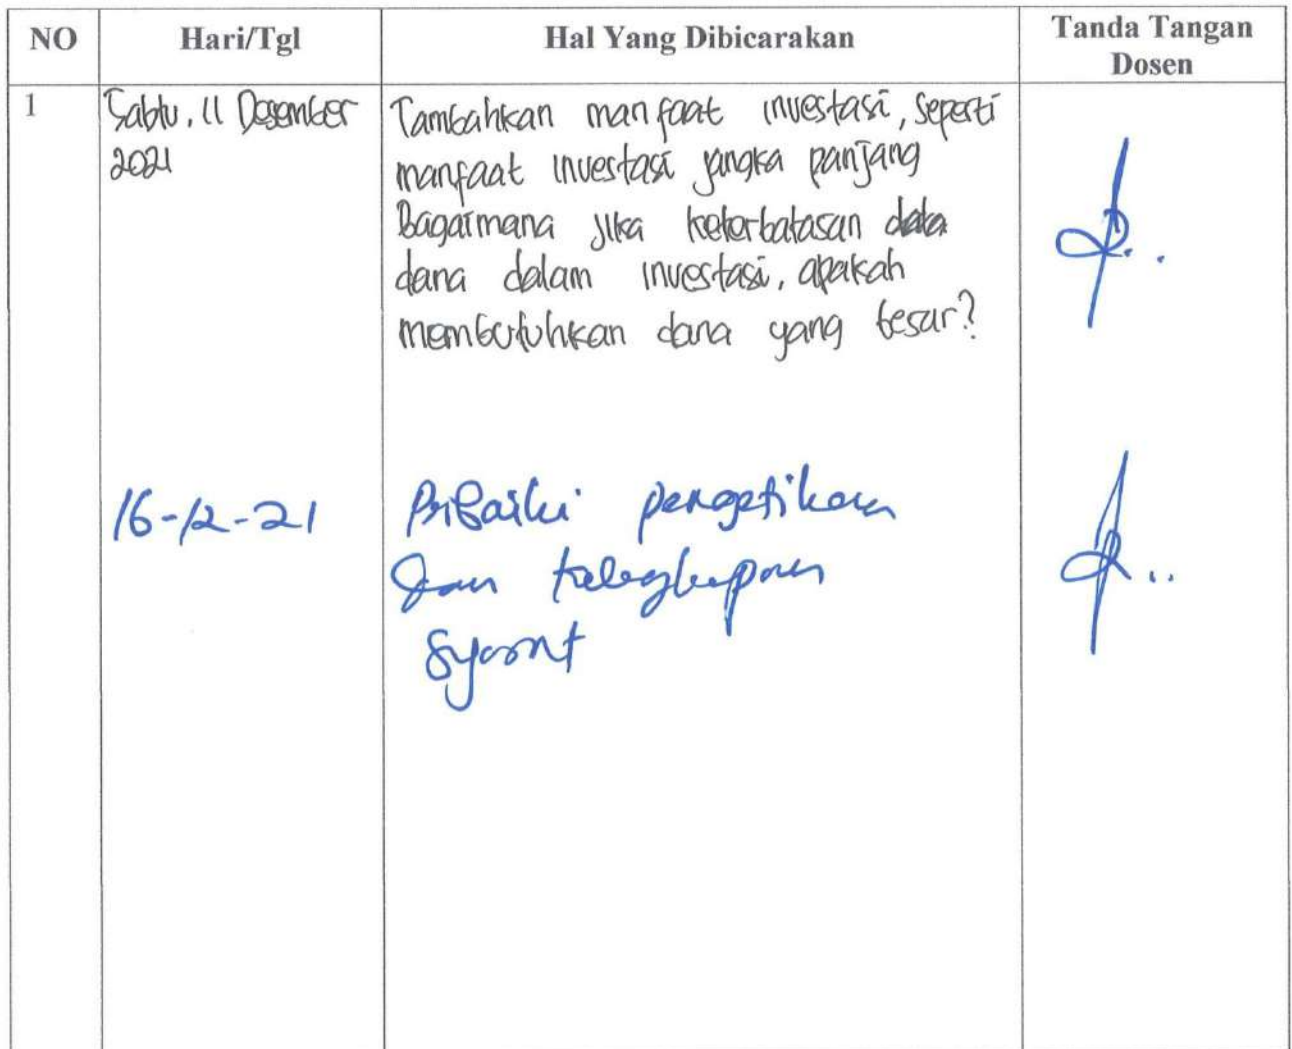 NO Hari/Tgl Hal Yang Dibicarakan Tanda Tangan
Dosen
1 Sabtu, 11 Desember Tambahkan manfaat investasi, seperti
2021 manfaat investasi jangka panjang
Bagaimana jika keterbatasan data
dana dalam investasi, apakah
membutuhkan dana yang besar?
16-12-21 Pribaiki pengetikan
dan kelengkapan